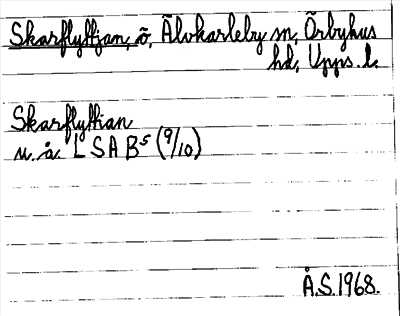 Skarflyttjan, ö, Älvkarleby sn, Örbyhus
hd, Upps. l.
Skarflyttian
u.å. LSAB⁵ (9/10)
Å.S.1968.